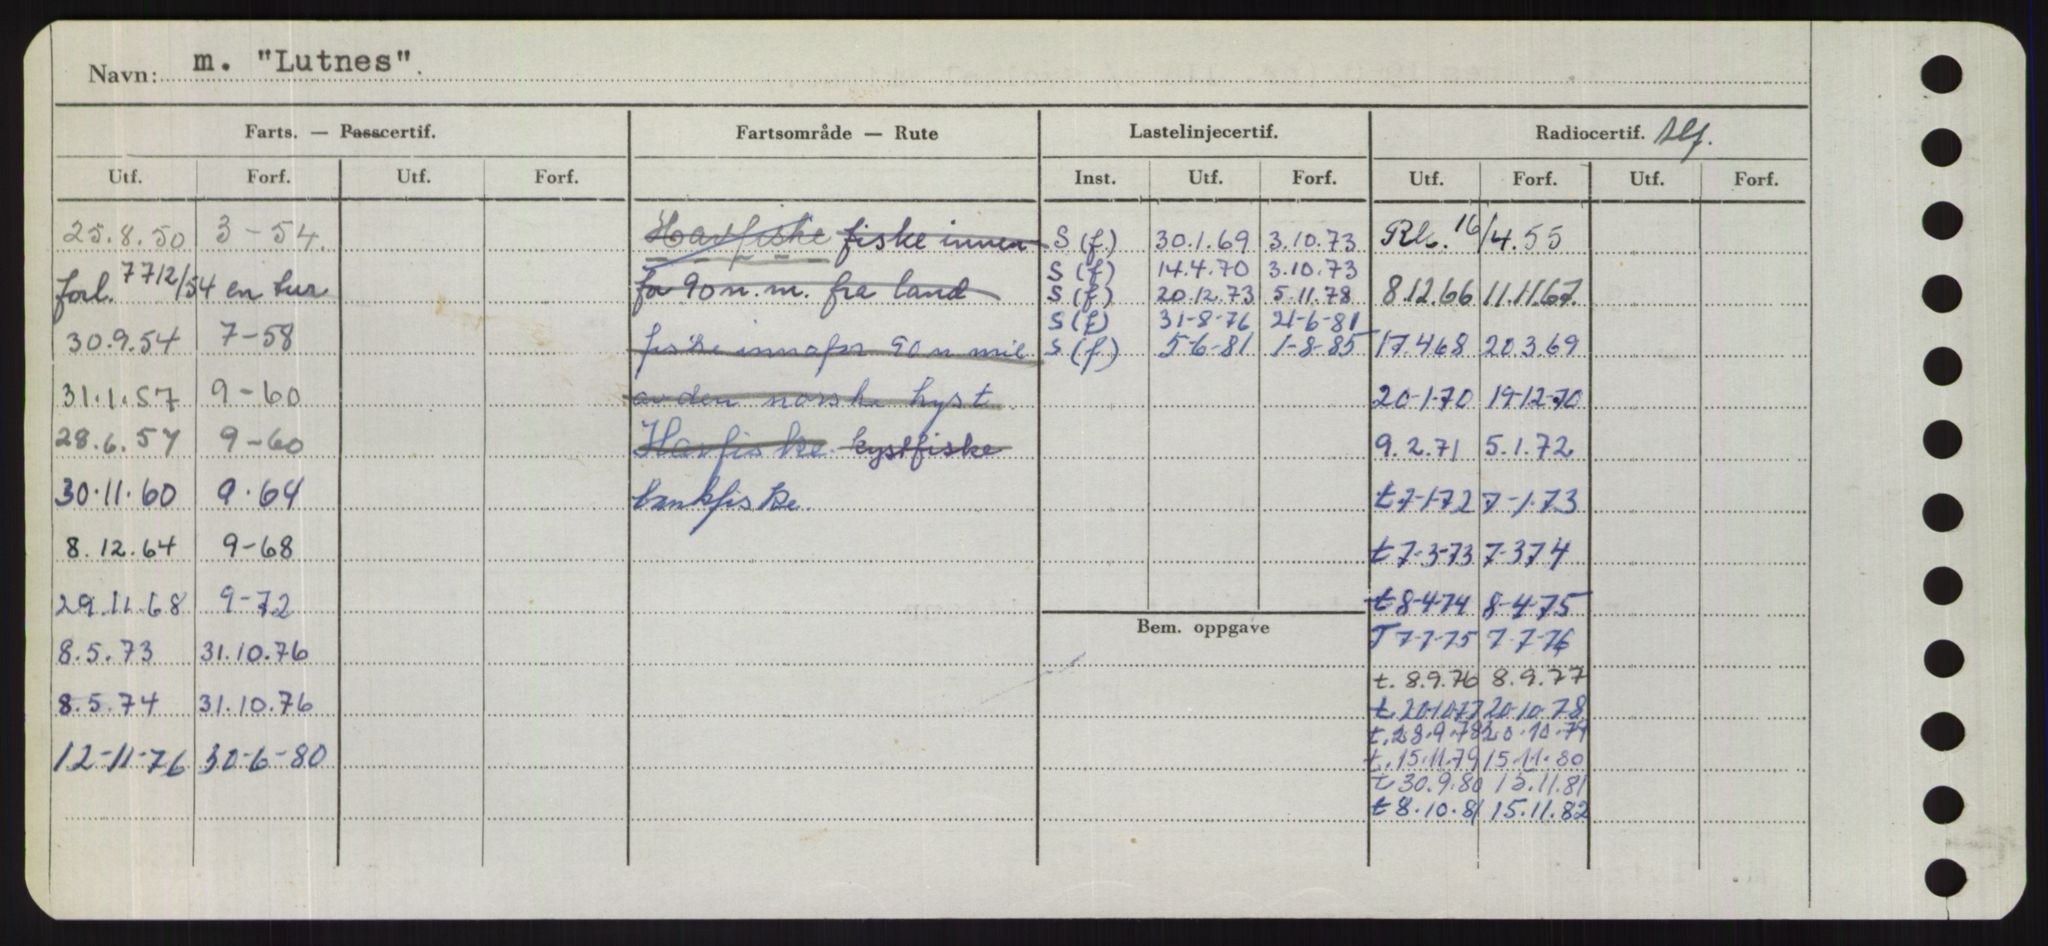 Navn: m. "Lutnes".
Farts. — Passcertif. Fartsområde — Rute Lastelinjecertif. Radiocertif. tlf.
Utf. Forf. Utf. Forf. Inst. Utf. Forf. Utf. Forf. Utf. Forf.
25.8.50 3-54. Havfiske fiske innen S (f) 30.1.69 3.10.73 16/4.55
S (f) 14.4.70 3.10.73
forl. en tur for 90 n.m. fra land S (f) 20.12.73 5.11.78 8.12.66 11.11.67
S (f) 31-8-76 21-6-81
30.9.54 7-58 fiske innafor 90 n mil S (f) 5-6-81 1-8-85 17.4.68 20.3.69
31.1.57 9-60 av den norske kyst 20-1-70 19-12-70
28.6.57 9-60 Havfiske kystfiske 9.2.71 5.1.72
30.11.60 9.64 bankfiske. t 7-1-72 7-1-73
8.12.64 9-68 t 7-3-73 7-3 74
29.11.68 9-72 t 8-4-74 8-4-75
Bem. oppgave
T 7-7-75 7-7-76
8.5.73 31.10.76
t. 8.9.76 8.9.77
8.5.74 31.10.76 t. 20-10-77 20-10-78
t. 28.9.78 20.10.79
12-11-76 30-6-80 t. 15.11.79 15.11.80
t 30.9.80 15.11.81
t 8.10.81 15.11.82